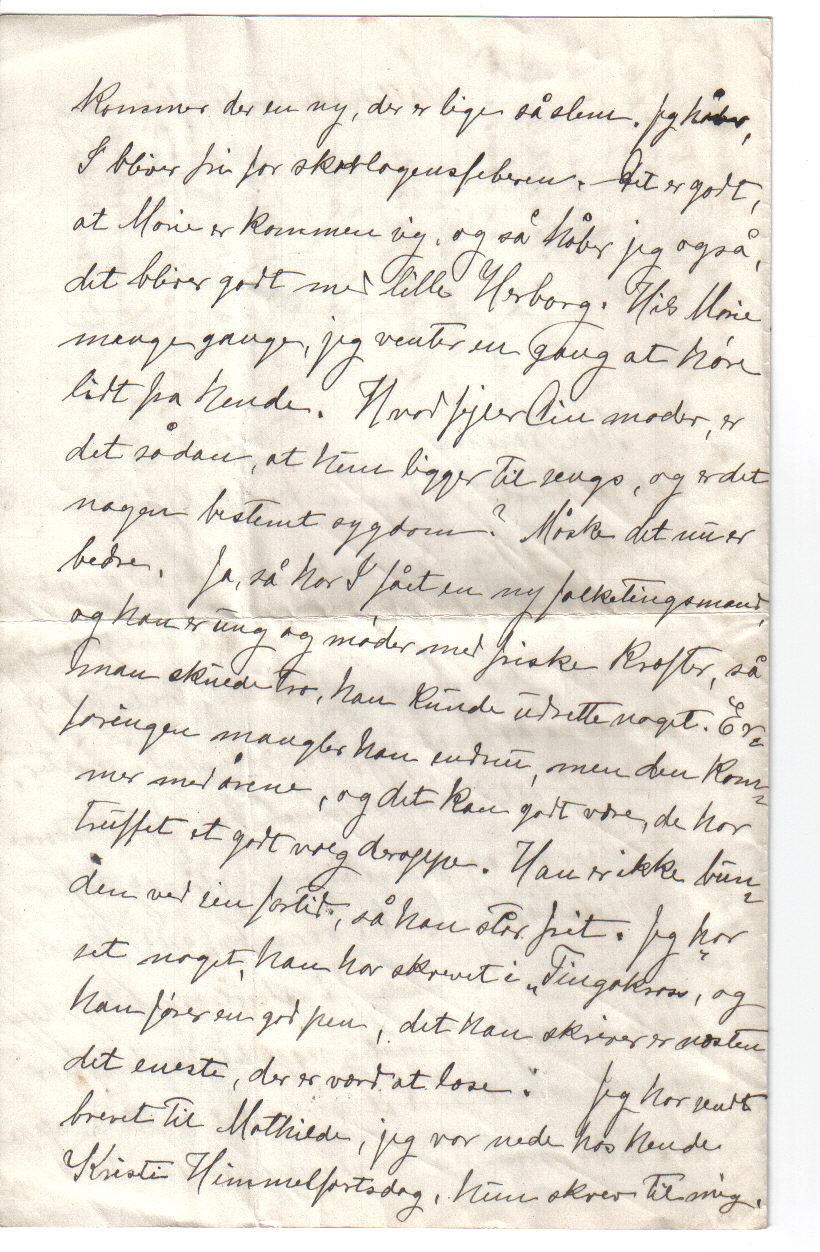 kommer der en ny, der er lige så slem. Jeg håber,
I bliver fri for skarlagensfeberen. Det er godt,
at Marie er kommen sig, og så håber jeg også,
det bliver godt med lille Herborg. Hils Marie
mange gange, jeg venter en gang at høre
lidt fra hende. Hvad fejler Din moder, er
det sådan, at hun ligger til sengs, og er det
nogen bestemt sygdom? Måske det nu er
bedre. Ja, så har I fået en ny folketingsmand,
og han er ung og møder med friske kræfter, så
man skulde tro, han kunde udrette noget. Er=
faringen mangler han endnu, men den kom=
mer med årene, og det kan godt være, de har
truffet et godt valg deroppe. Han er ikke bun=
den ved sin fortid, så han står frit. Jeg har
set noget, han har skrevet i „Tingakross”, og
han fører en god pen, det han skriver er næsten
det eneste, der er værd at læse. Jeg har sendt
brevet til Mathilde, jeg var nede hos hende
Kristi Himmelfartsdag, hun skrev til mig,